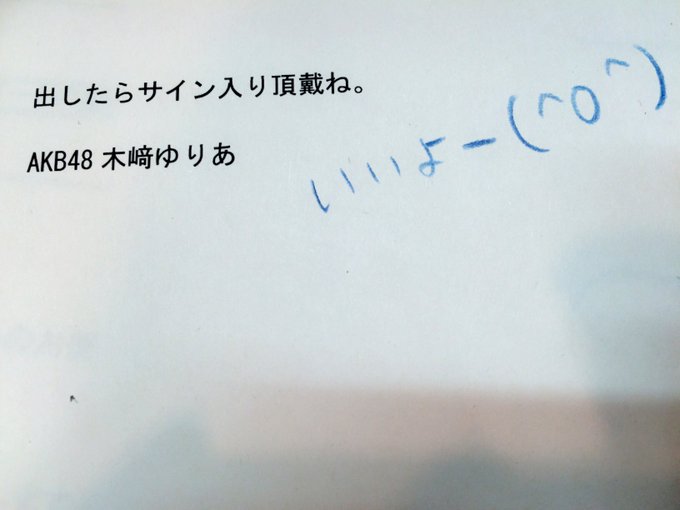 出したらサイン入り頂戴ね。
AKB48 木﨑ゆりあ
いいよー(^O^)